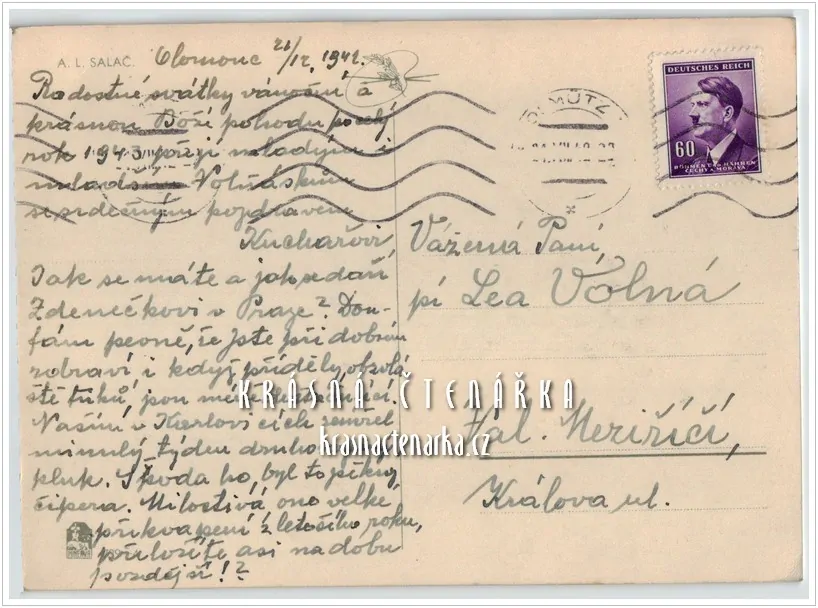 A. L. SALAČ.
Olomouc 21/12. 1942.
Radostné svátky vánoční a
krásnou Boží pohodu po celý
rok 1943 přejí mladým i
mladším Volňáskům
se srdečným pozdravem
Kuchařovi
Jak se máte a jak se daří
Zdenečkovi v Praze? Dou-
fám pevně, že jste při dobrém
zdraví i když příděly, obzvlá-
ště tuků, jsou
Našim v Karlovicích zemřel
minulý týden druhý
pluk. Škoda ho, byl to pěkný
čipera. Milostivá, ono velké
překvapení z letošího roku,
přeložíte asi na dobu
pozdější!?
DEUTSCHES REICH
60
BÖHMEN U. MÄHREN
ČECHY A MORAVA
OLMÜTZ
Vážená Paní,
pí Lea Volná
Val. Meziříčí,
Králova ul.
KRÁSNÁ ČTENÁŘKA
krasnactenarka.cz